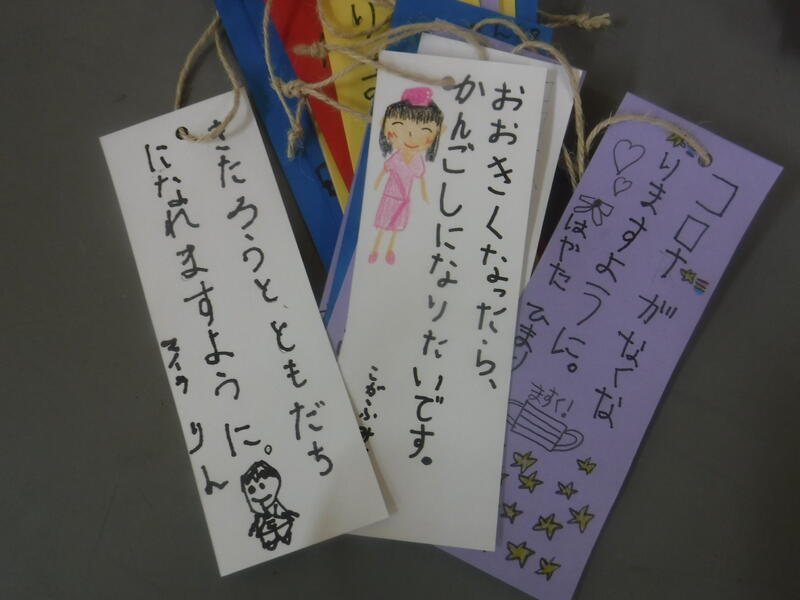 きたろうと、ともだち
になれますように。
マイク りん
おおきくなったら、
かんごしになりたいです。
コロナがなくな
りますように。
はやた ひまり
ますく!